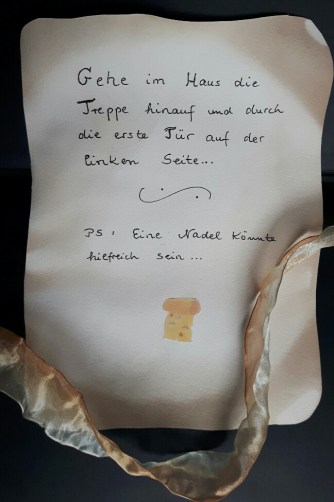 Gehe im Haus die
Treppe hinauf und durch
die erste Tür auf der
linken Seite...
PS: Eine Nadel könnte
hilfreich sein...